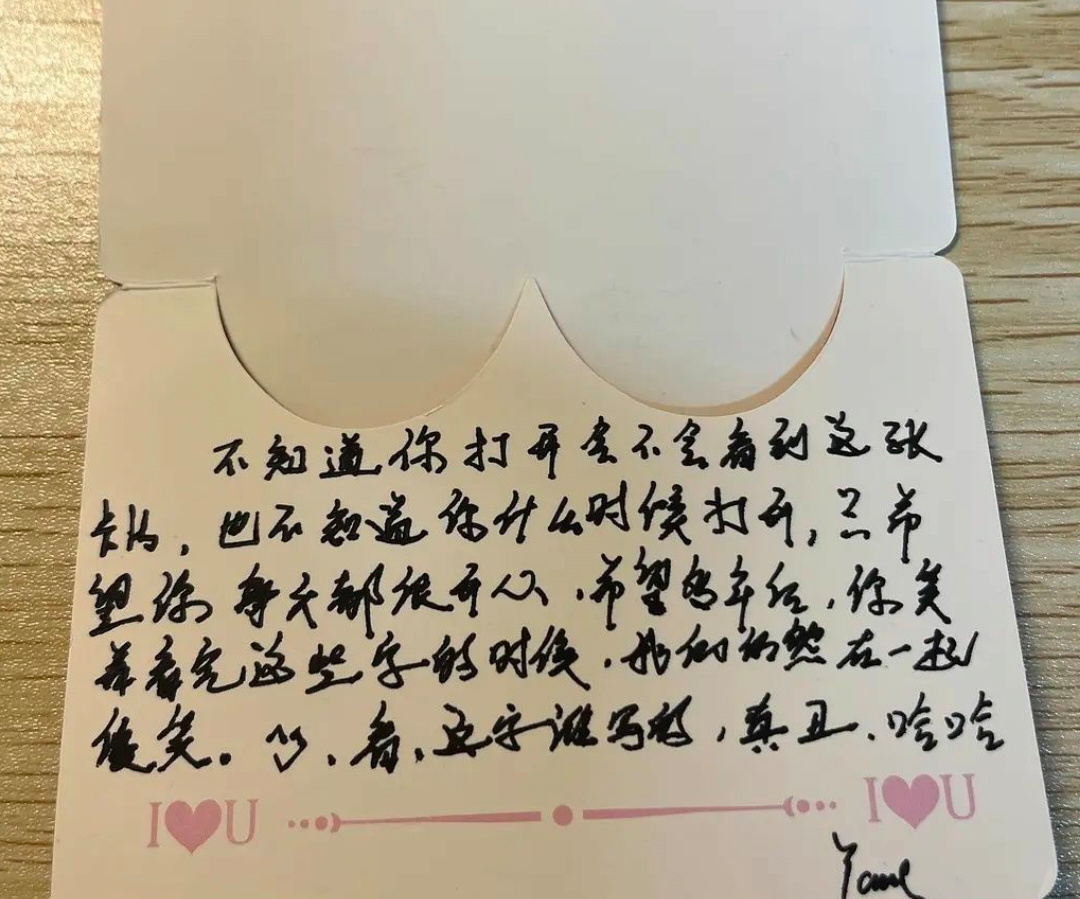 不知道你打开会不会看到这张
卡片，也不知道你什么时候打开，只希
望你每天都很开心，希望多年后，你笑
着看完这些字的时候，我们仍然在一起
傻笑。看，这字谁写的，真丑，哈哈
I U
I U